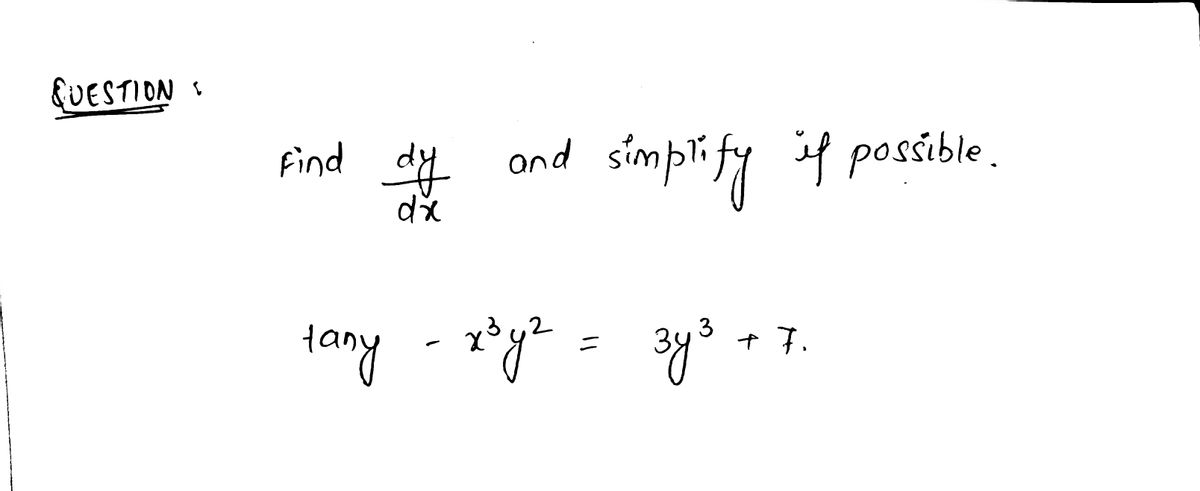 QUESTION :
Find dy/dx and simplify if possible.
tany - x³y² = 3y³ + 7.